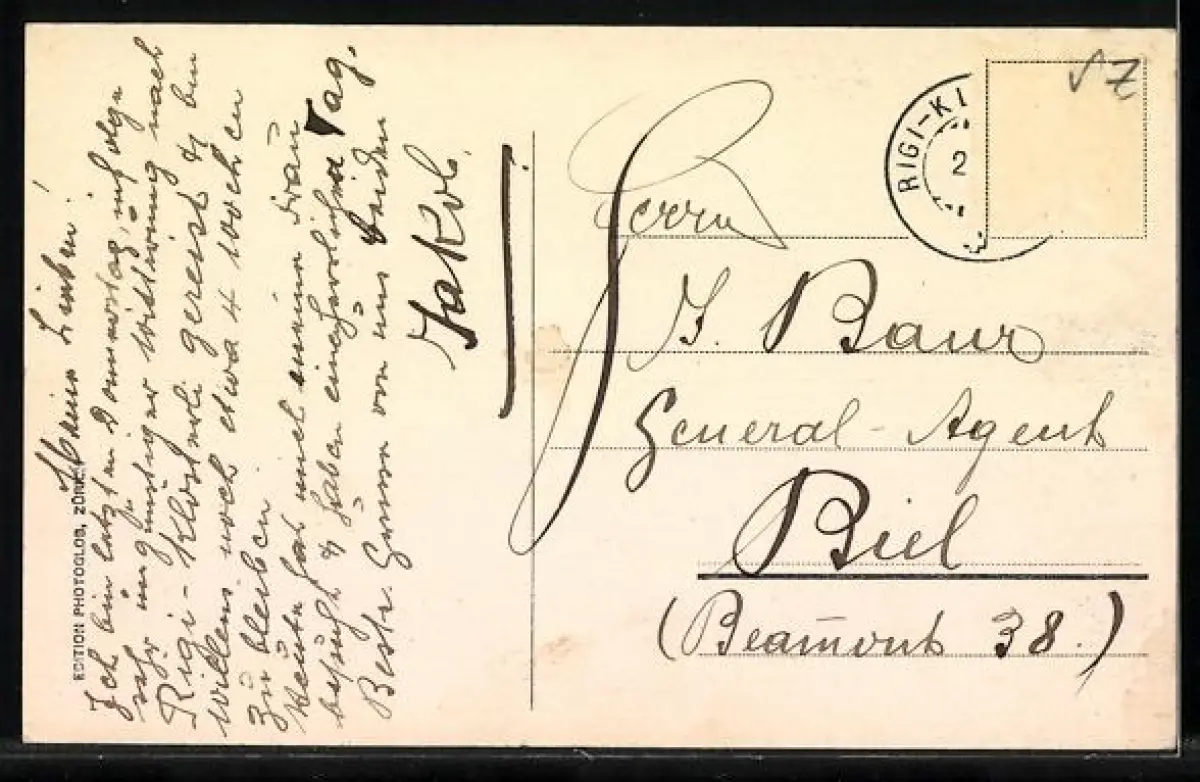 Meine Lieben!
Ich bin letzten Donnerstag infolge
sehr ungünstiger Witterung nach
Rigi-Klösterli gereist & bin
Willens noch etwa 4 Wochen
zu bleiben
Heute hat mich meine Frau
besucht & haben einen herrlichen Tag.
Beste Grüsse von uns beiden
Jakob.
EDITION PHOTOGLOB, ZÜRICH
RIGI-KL
2
SZ
Herrn
J. Baur
General-Agent
Biel
(Beaumont 38.)